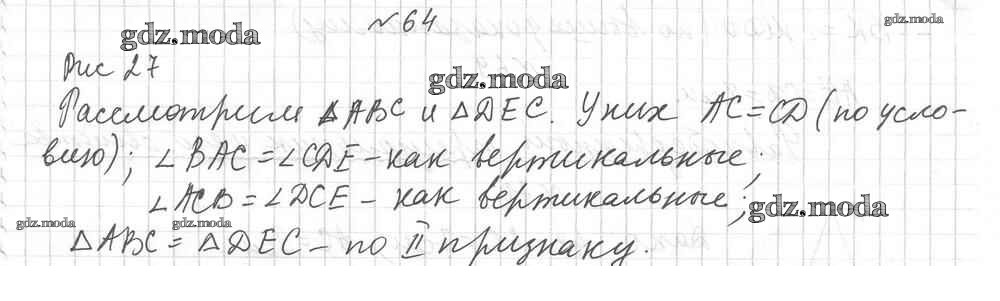 № 64
gdz.moda
Рис 27
gdz.moda
Рассмотрим ΔABC и ΔDEC. У них AC=CD (по усло-
вию); ∠BAC=∠CDE - как вертикальные;
∠ACB=∠DCE - как вертикальные;
gdz.moda
gdz.moda
gdz.moda
ΔABC = ΔDEC - по II признаку.
gdz.moda